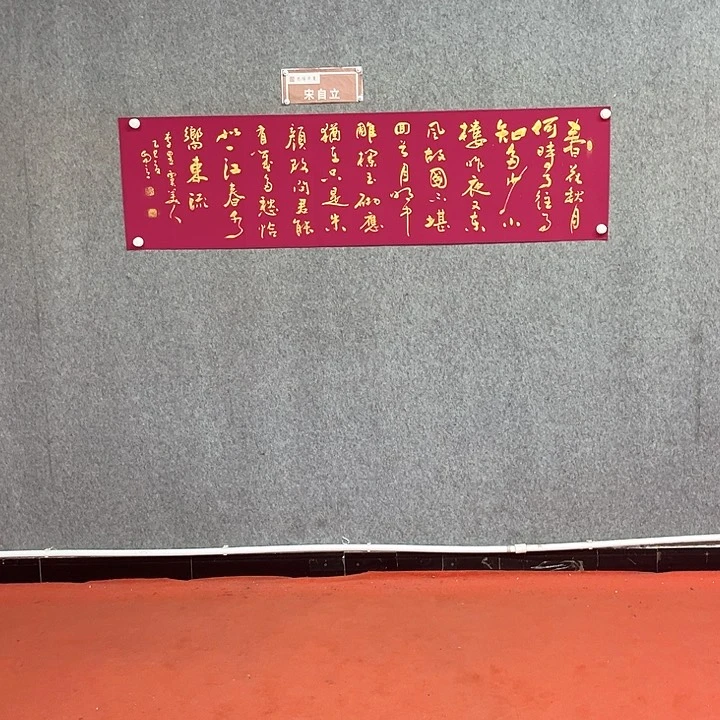 宋自立
春花秋月
何時了往事
知多少小
樓昨夜又東
風故國不堪
回首月明中
雕欄玉砌應
猶在只是朱
顏改問君能
有幾多愁恰
似一江春水
嚮東流
李煜虞美人
乙巳自立